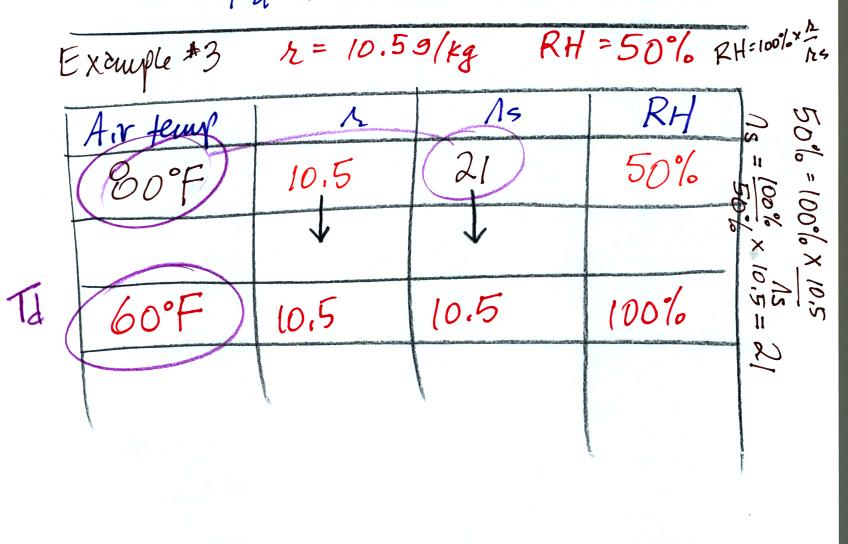 Example #3 r = 10.5g/kg RH = 50% RH = 100% × r/rs
Air temp r rs RH
80°F 10.5 21 50%
Td 60°F 10.5 10.5 100%
50% = 100% × 10.5/rs
rs = 100%/50% × 10.5 = 21